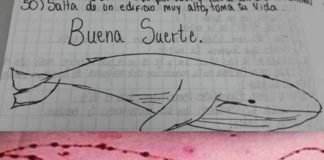 50) Salta de un edificio muy alto, toma tu vida.
Buena Suerte.